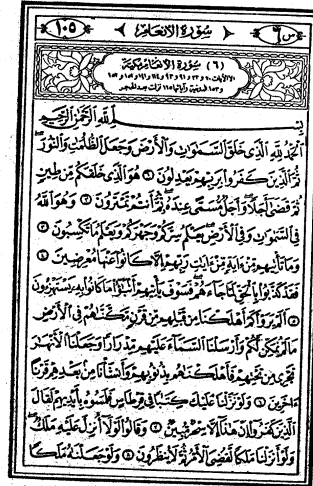 س ٦ سُورَةُ الأَنْعَامِ ١٠٥
(٦) سُورَةُ الأَنْعَامِ مَكِّيَّة
بِسْمِ اللَّهِ الرَّحْمَٰنِ الرَّحِيمِ
الْحَمْدُ لِلَّهِ الَّذِي خَلَقَ السَّمَوَاتِ وَالْأَرْضَ وَجَعَلَ الظُّلُمَاتِ وَالنُّورَ
ثُمَّ الَّذِينَ كَفَرُوا بِرَبِّهِمْ يَعْدِلُونَ ١ هُوَ الَّذِي خَلَقَكُم مِّن طِينٍ
ثُمَّ قَضَى أَجَلًا وَأَجَلٌ مُّسَمًّى عِندَهُ ثُمَّ أَنتُمْ تَمْتَرُونَ ٢ وَهُوَ اللَّهُ
فِي السَّمَوَاتِ وَفِي الْأَرْضِ يَعْلَمُ سِرَّكُمْ وَجَهْرَكُمْ وَيَعْلَمُ مَا تَكْسِبُونَ ٣
وَمَا تَأْتِيهِم مِّنْ ءَايَةٍ مِّنْ ءَايَاتِ رَبِّهِمْ إِلَّا كَانُوا عَنْهَا مُعْرِضِينَ ٤
فَقَدْ كَذَّبُوا بِالْحَقِّ لَمَّا جَاءَهُمْ فَسَوْفَ يَأْتِيهِمْ أَنبَاءُ مَا كَانُوا بِهِ يَسْتَهْزِءُونَ
٥ أَلَمْ يَرَوْا كَمْ أَهْلَكْنَا مِن قَبْلِهِم مِّن قَرْنٍ مَّكَّنَّاهُمْ فِي الْأَرْضِ
مَا لَمْ نُمَكِّن لَّكُمْ وَأَرْسَلْنَا السَّمَاءَ عَلَيْهِم مِّدْرَارًا وَجَعَلْنَا الْأَنْهَارَ
تَجْرِي مِن تَحْتِهِمْ فَأَهْلَكْنَاهُم بِذُنُوبِهِمْ وَأَنشَأْنَا مِن بَعْدِهِمْ قَرْنًا
ءَاخَرِينَ ٦ وَلَوْ نَزَّلْنَا عَلَيْكَ كِتَابًا فِي قِرْطَاسٍ فَلَمَسُوهُ بِأَيْدِيهِمْ لَقَالَ
الَّذِينَ كَفَرُوا إِنْ هَذَا إِلَّا سِحْرٌ مُّبِينٌ ٧ وَقَالُوا لَوْلَا أُنزِلَ عَلَيْهِ مَلَكٌ
وَلَوْ أَنزَلْنَا مَلَكًا لَّقُضِيَ الْأَمْرُ ثُمَّ لَا يُنظَرُونَ ٨ وَلَوْ جَعَلْنَاهُ مَلَكًا